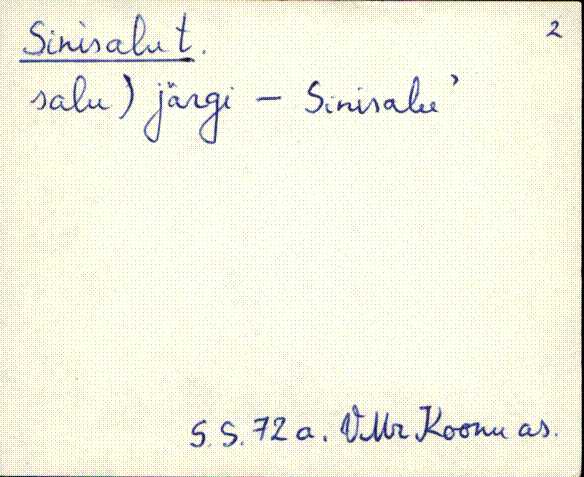 2
Sinisalu t.
salu) järgi – Sinisalu’
S. S. 72 a. VMr Koonu as.